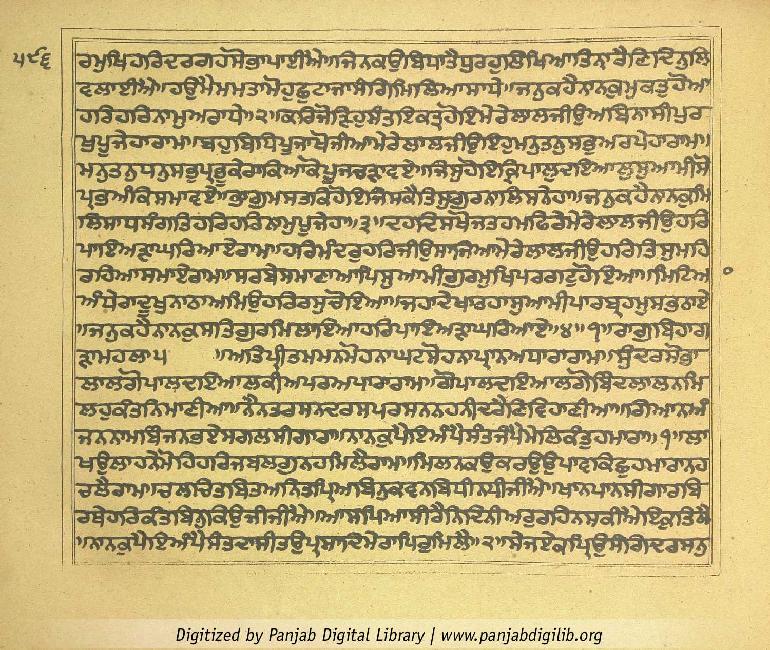 ੫੯੬
ਰਮੁਖਿਹਰਿਦਰਗਹਸੋਭਾਪਾਈਐ॥ਜਿਨਕਉਬਿਧਾਤੈਧੁਰਹੁਲਿਖਿਆਤਿਨਾਰੈਣਿਦਿਨੁਲਿ
ਵਲਾਈਐ॥ਹਉਮੈਮਮਤਾਮੋਹੁਛੁਟਾਜਾਸੰਗਿਮਿਲਿਆਸਾਧੇ॥ਜਨੁਕਹੈਨਾਨਕੁਮੁਕਤੁਹੋਆ
ਹਰਿਹਰਿਨਾਮੁਅਰਾਧੇ॥੨॥ਕਰਿਜੋੜਿਹੁਸੰਤਇਕਤ੍ਰਹੋਇਮੇਰੇਲਾਲਜੀਉਅਬਿਨਾਸੀਪੁਰ
ਖੁਪੂਜੇਹਾਰਾਮ॥ਬਹੁਬਿਧਿਪੂਜਾਖੋਜੀਆਮੇਰੇਲਾਲਜੀਉਇਹੁਮਨੁਤਨੁਸਭੁਅਰਪੇਹਾਰਾਮ॥
ਮਨੁਤਨੁਧਨੁਸਭੁਪ੍ਰਭੂਕੇਰਾਕਿਆਕੋਪੂਜਚੜਾਵਏ॥ਜਿਸੁਹੋਇਕ੍ਰਿਪਾਲੁਦਇਆਲੁਸੁਆਮੀਸੋ
ਪ੍ਰਭਅੰਕਿਸਮਾਵਏ॥ਭਾਗੁਮਸਤਕਿਹੋਇਜਿਸਕੈਤਿਸੁਗੁਰਨਾਲਿਸਨੇਹਾ॥ਜਨੁਕਹੈਨਾਨਕੁਮਿ
ਲਿਸਾਧਸੰਗਤਿਹਰਿਹਰਿਨਾਮੁਪੂਜੇਹਾ॥੩॥ਦਹਦਿਸਖੋਜਤਹਮਫਿਰੇਮੇਰੇਲਾਲਜੀਉਹਰਿ
ਪਾਇਅੜਾਘਰਿਆਏਰਾਮ॥ਹਰਿਮੰਦਰੁਹਰਿਜੀਉਸਾਜਿਆਮੇਰੇਲਾਲਜੀਉਹਰਿਤਿਸੁਮਹਿ
ਰਹਿਆਸਮਾਏਰਾਮ॥ਸਰਬੇਸਮਾਣਾਆਪਿਸੁਆਮੀਗੁਰਮੁਖਿਪਰਗਟੁਹੋਇਆ॥ਮਿਟਿਆ
ਅੰਧੇਰਾਦੂਖੁਨਾਠਾਅਮਿਉਹਰਿਰਸੁਚੋਇਆ॥ਜਹਾਦੇਖਾਤਹਾਸੁਆਮੀਪਾਰਬ੍ਰਹਮੁਸਭਠਾਏ
॥ਜਨੁਕਹੈਨਾਨਕੁਸਤਿਗੁਰਮਿਲਾਇਆਹਰਿਪਾਇਅੜਾਘਰਿਆਏ॥੪॥੧॥ਰਾਗੁਬਿਹਾਗ
ੜਾਮਹਲਾ੫ ॥ਅਤਿਪ੍ਰੀਤਮਮਨਮੋਹਨਾਘਟਸੋਹਨਾਪ੍ਰਾਨਅਧਾਰਾਰਾਮ॥ਸੁੰਦਰਸੋਭਾ
ਲਾਲਗੋਪਾਲਦਇਆਲਕੀਅਪਰਅਪਾਰਾਰਾਮ॥ਗੋਪਾਲਦਇਆਲਗੋਬਿੰਦਲਾਲਨਮਿ
ਲਹੁਕੰਤਨਿਮਾਣੀਆ॥ਨੈਨਤਰਸਨਦਰਸਪਰਸਨਨਹਨੀਦਰੈਣਿਵਿਹਾਣੀਆ॥ਗਿਆਨਅੰ
ਜਨਨਾਮਬਿੰਜਨਭਏਸਗਲਸੀਗਾਰਾ॥ਨਾਨਕੁਪਇਅੰਪੈਸੰਤਜੰਪੈਮੇਲਿਕੰਤੁਹਮਾਰਾ॥੧॥ਲਾ
ਖਉਲਾਹਨੇਮੋਹਿਹਰਿਜਬਲਗੁਨਹਮਿਲੈਰਾਮ॥ਮਿਲਨਕਉਕਰਉਉਪਾਵਕਿਛੁਹਮਾਰਾਨਹ
ਚਲੈਰਾਮ॥ਚਲਚਿਤਬਿਤਅਨਿਤਪ੍ਰਿਅਬਿਨੁਕਵਨਬਿਧੀਨਧੀਜੀਐ॥ਖਾਨਪਾਨਸੀਗਾਰਬਿ
ਰਥੇਹਰਿਕੰਤਬਿਨੁਕਿਉਜੀਜੀਐ॥ਆਸਪਿਆਸੀਰੈਨਿਦਿਨੀਅਰੁਰਹਿਨਸਕੀਐਇਕੁਤਿਲੈ
॥ਨਾਨਕੁਪਇਅੰਪੈਸੰਤਦਾਸੀਤਉਪ੍ਰਸਾਦਿਮੇਰਾਪਿਰੁਮਿਲੈ॥੨॥ਸੇਜਏਕਪ੍ਰਿਉਸੰਗਿਦਰਸਨੁ
Digitized by Panjab Digital Library | www.panjabdigilib.org